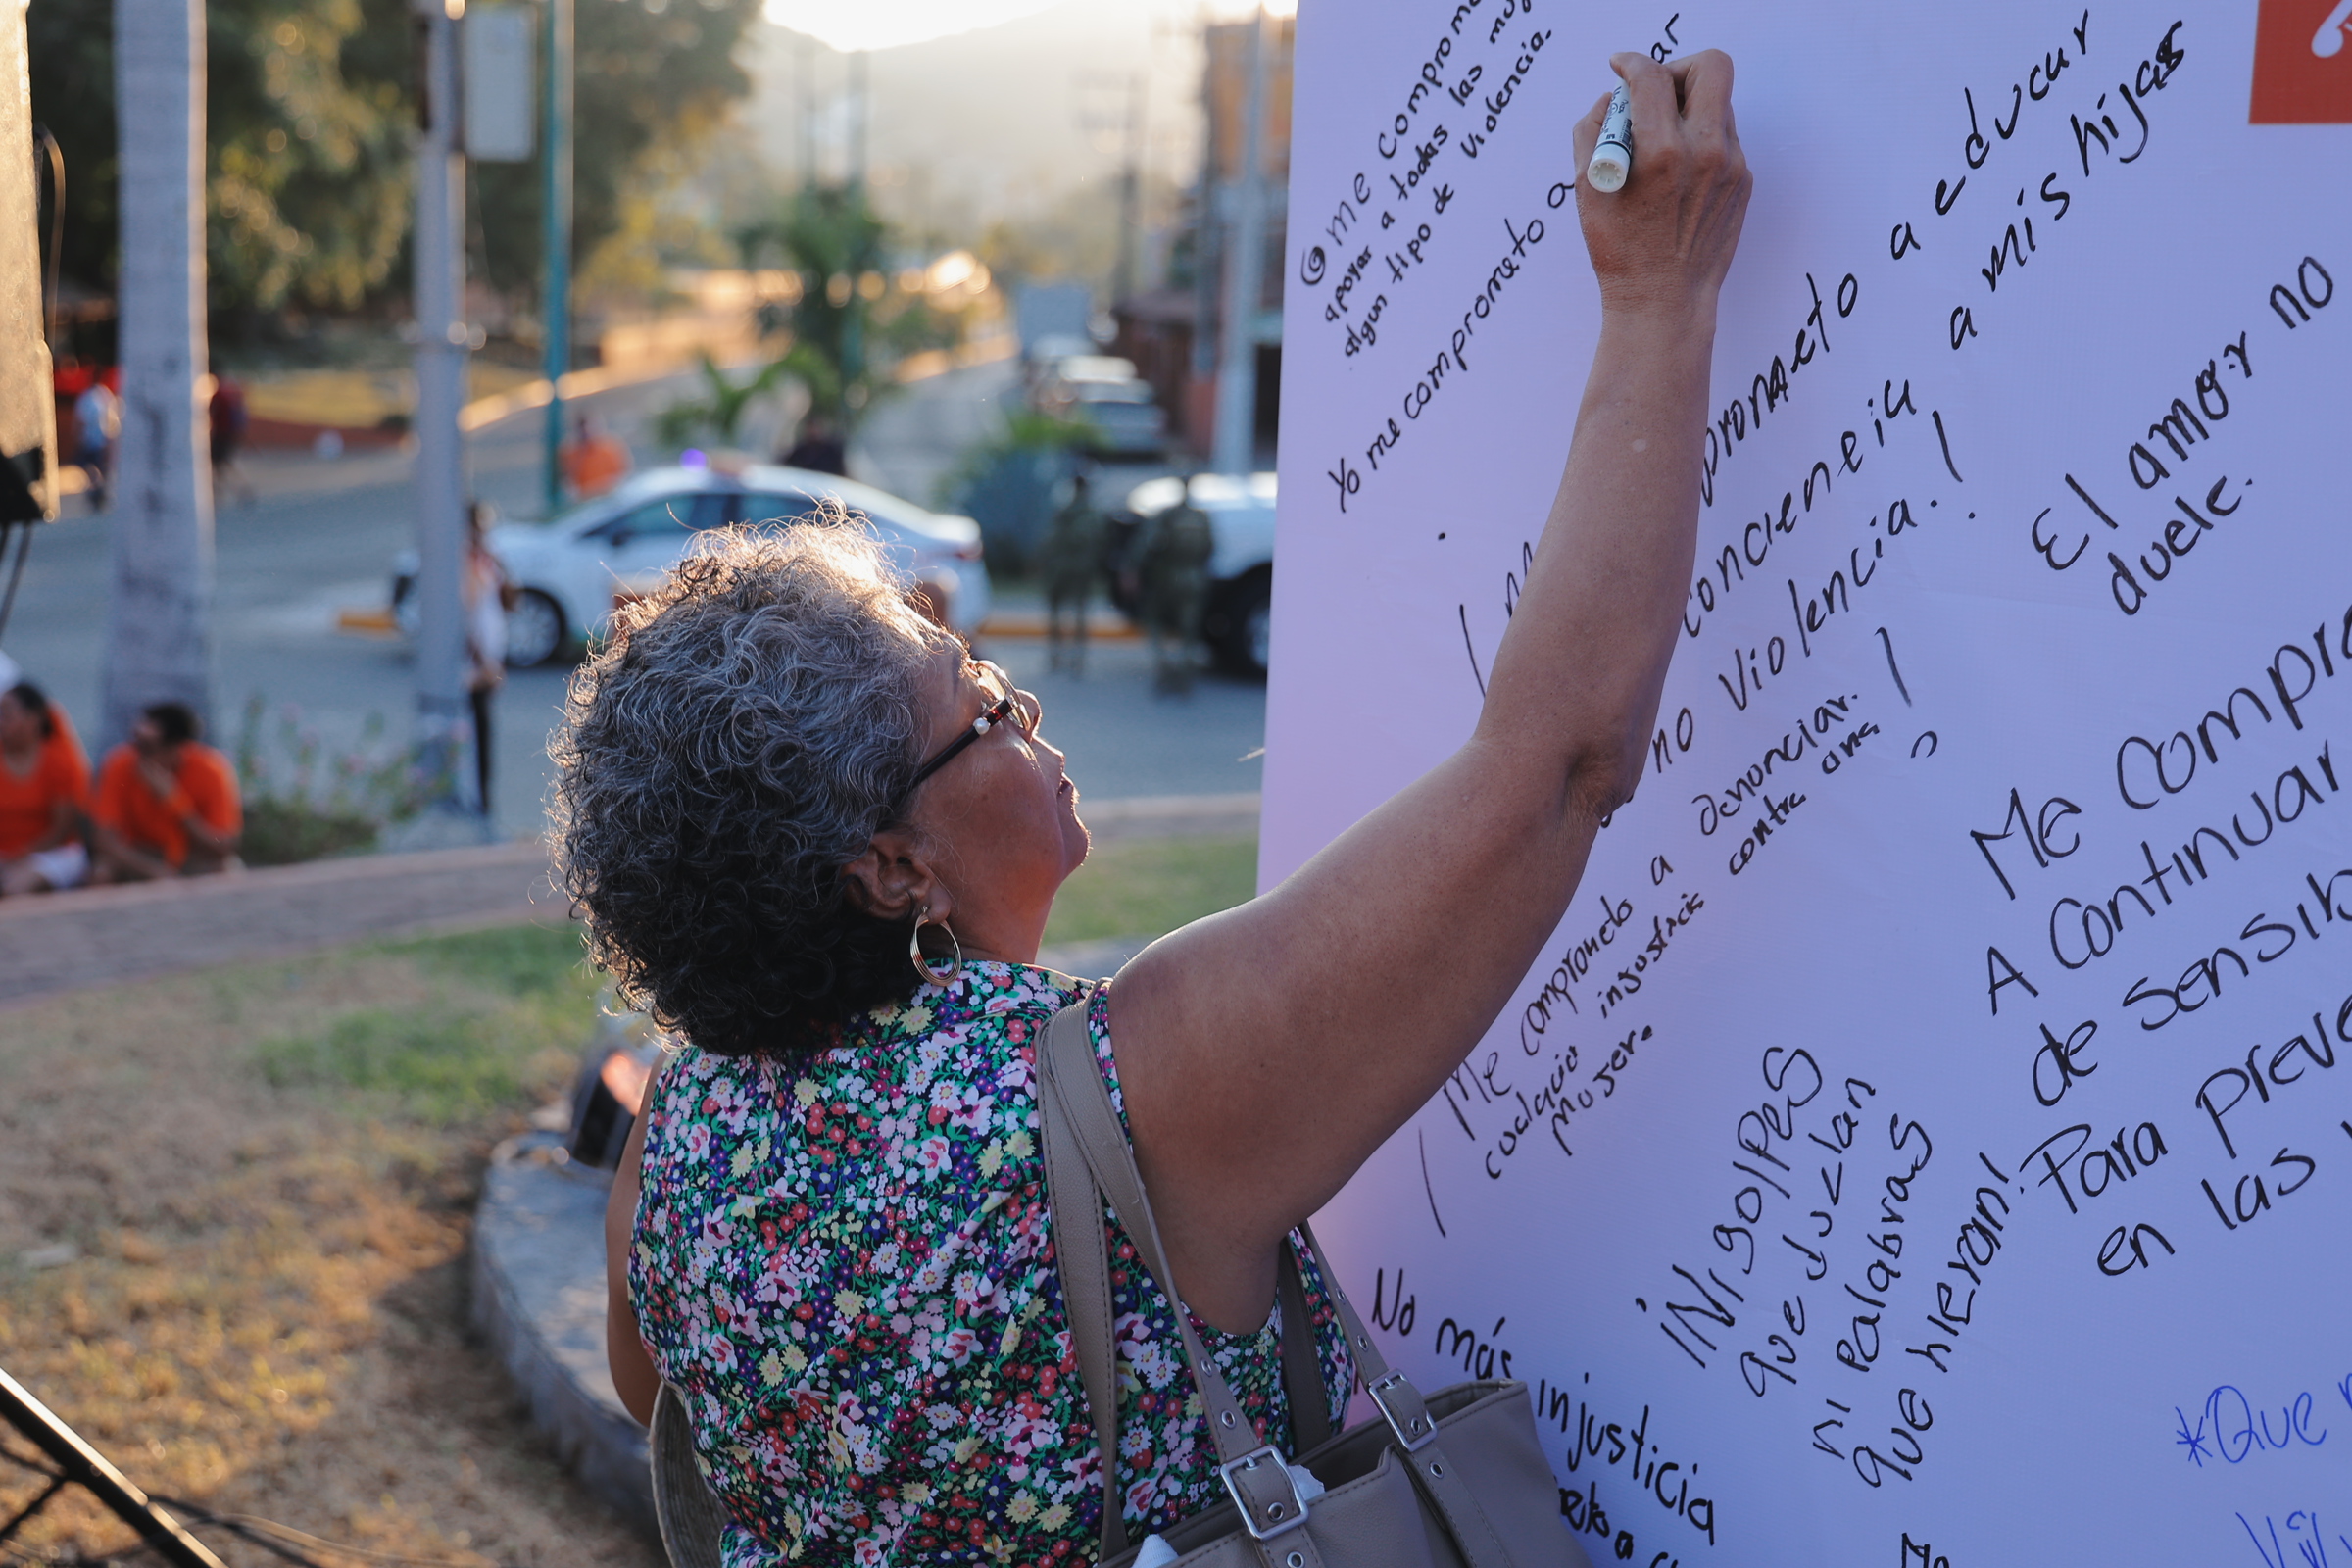 me comprome
apoyar a todas las muj
algun tipo de violencia.
Yo me comprometo a
ar
prometo a educar
a mis hijas
conciencia
no violencia.!
El amor no
duele.
Me comprometo a denunciar.
cualquier injusticia contra una
mujer.
Me Compro
A Continuar
de Sensib
Para Preve
en las
¡Ni golpes
que duelan
ni palabras
que hieran!
No más
injusticia
*Que